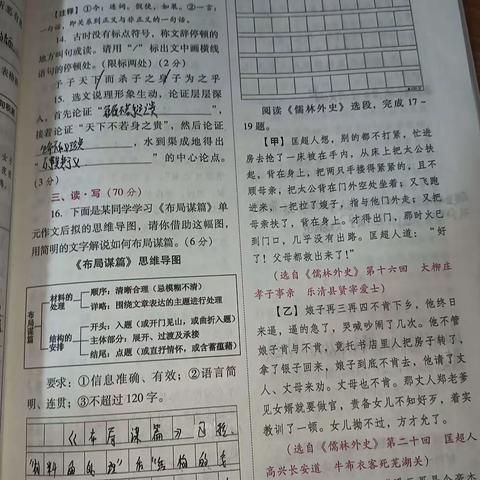 【注释】①今：连词。假使，如果。②一言：
一句话，即关系到正义与非正义的一句话。
14. 古时没有标点符号，称文辞停顿的
地方叫句或读。请用“/”标出文中画横线
语句的停顿处。（限标两处）（2 分）
予子天下而杀子之身子为之乎
15. 选文说理形象生动，论证层层深
入，首先论证“
接着论证“天下不若身之贵”，然后论证
，水到渠成地得出
“ ”的中心论点。
（3 分）
三、读·写（70 分）
16. 下面是某同学学习《布局谋篇》单
元作文后拟的思维导图，请你借助这幅图，
用简明的文字解说如何布局谋篇。（6 分）
《布局谋篇》思维导图
布局谋篇
材料的处理
顺序：清晰合理（忌模糊不清）
详略：围绕文章表达的主题进行处理
结构的安排
开头：入题（或开门见山，或曲折入题）
主体部分：展开、过渡及承接
结尾：点题（或直抒情怀，或含蓄蕴藉）
要求：①信息准确、有效；②语言简
明、连贯；③不超过 120 字。
《布局谋篇》包括
“材料的处理”与“结构的安
阅读《儒林外史》选段，完成 17～
19 题。
【甲】匡超人想，别的都不打紧，忙进
房去抢了一床被在手内，从床上把太公扶
起，背在身上，把两只手搂得紧紧的，且不
顾母亲，把太公背在门外空处坐着；又飞跑
进来，一把拉了嫂子，指与他门外走；又把
母亲扶了，背在身上。才得出门，那时火已
到门口，几乎没有出路。匡超人道：“好
了！父母都救出来了！”
（选自《儒林外史》第十六回 大柳庄
孝子事亲 乐清县贤宰爱士）
【乙】娘子再三再四不肯下乡，他终日
来逼，逼的急了，哭喊吵闹了几次。他不管
娘子肯与不肯，竟托书店里人把房子转了，
拿了银子回来，娘子到底不肯去，他请了丈
人、丈母来劝。丈母也不肯。那丈人郑老爹
见女婿就要做官，责备女儿不知好歹，着实
教训了一顿。女儿拗不过，方才允了。
（选自《儒林外史》第二十回 匡超人
高兴长安道 牛布衣客死芜湖关）